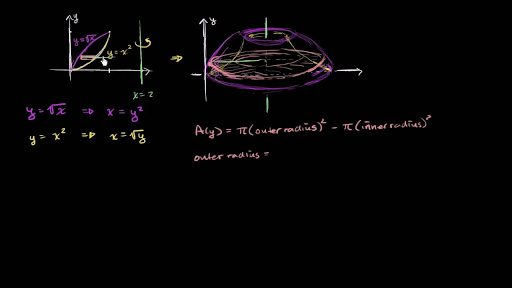 y
y = √x
y = x²
x = 2
⇒
y
y = √x ⇒ x = y²
y = x² ⇒ x = √y
A(y) = π(outer radius)² − π(inner radius)²
outer radius =